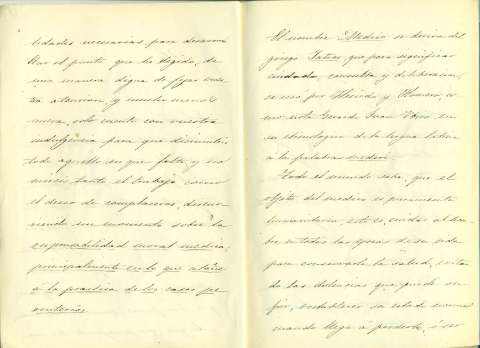 lidades necesarias para desarro-
llar el punto que he elegido, de
una manera digna de fijar vues-
tra atencion, y mucho menos
nueva, solo cuento con vuestra
indulgencia para que disimuleis
todo aquello en que falte, y no
mireis tanto el trabajo como
el deseo de complaceros, discur-
riendo un momento sobre la
responsabilidad moral medica,
principalmente en lo que atañe
á la practica de los casos pe-
rentorios.
El nombre Medico se deriva del
griego que para significar
cuidado, consulta y deliberacion,
se usó por Hesiodo y Homero, co-
mo nota Gerardo Juan en
su etimologico de la lengua latina
á la palabra
Todo el mundo sabe, que el
objeto del medico es puramente
humanitario esto es, cuidar al hom-
bre en todas las epocas de su vida
para conservarle la salud, evitar-
le las dolencias que puede su-
frir, restablecer su estado normal
cuando llega á perderle, ó